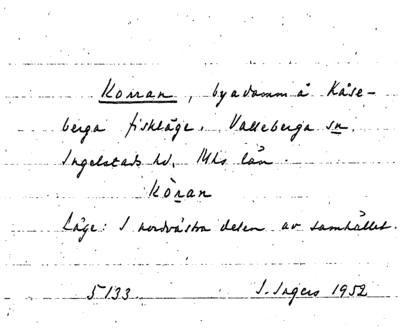 Korran, byadamm å Kåse-
berga fiskläge. Valleberga sn.
Ingelstads hd. Mhs län.
kòran
Läge: I nordvästra delen av samhället.
5133. I. Ingers 1952